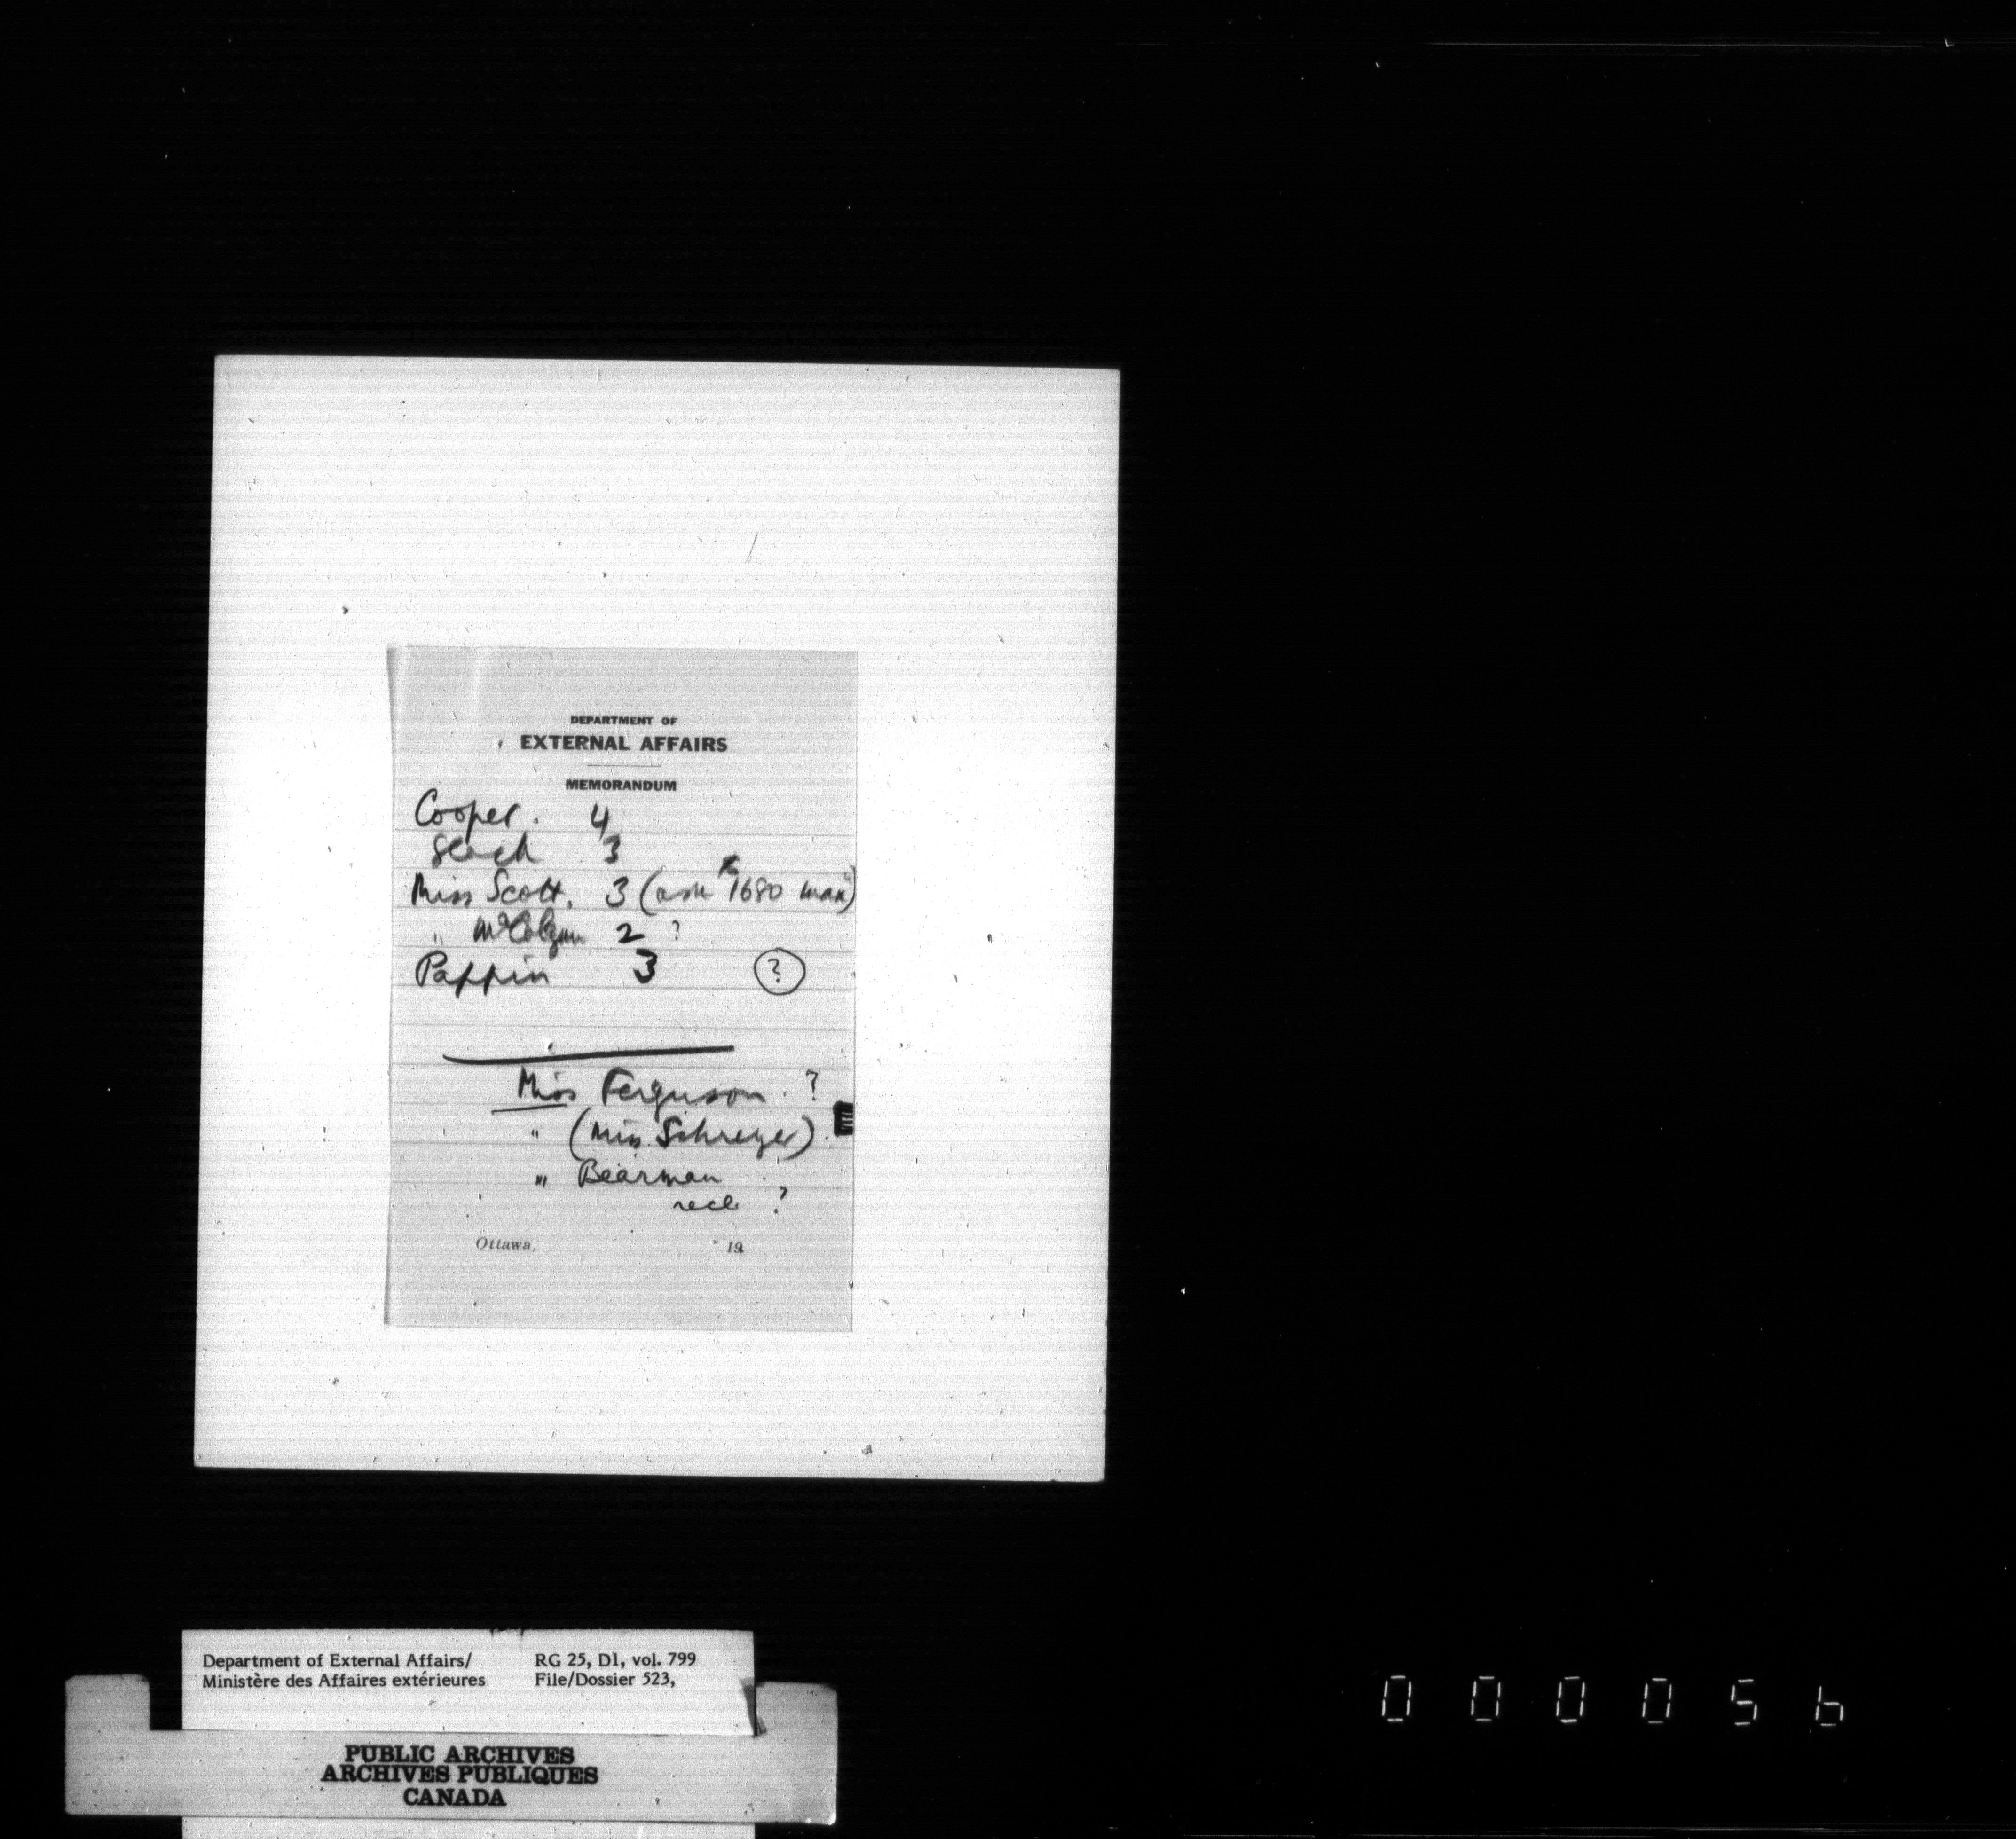 DEPARTMENT OF
EXTERNAL AFFAIRS
MEMORANDUM
Cooper. 4
3
Miss Scott. 3 ( 1680 max)
" 2 ?
Pappin 3 ?
Miss Ferguson. ?
" (Miss Schreyer).
" Bearman
?
Ottawa, 19
Department of External Affairs/ RG 25, D1, vol. 799
Ministère des Affaires extérieures File/Dossier 523,
PUBLIC ARCHIVES
ARCHIVES PUBLIQUES
CANADA
000056